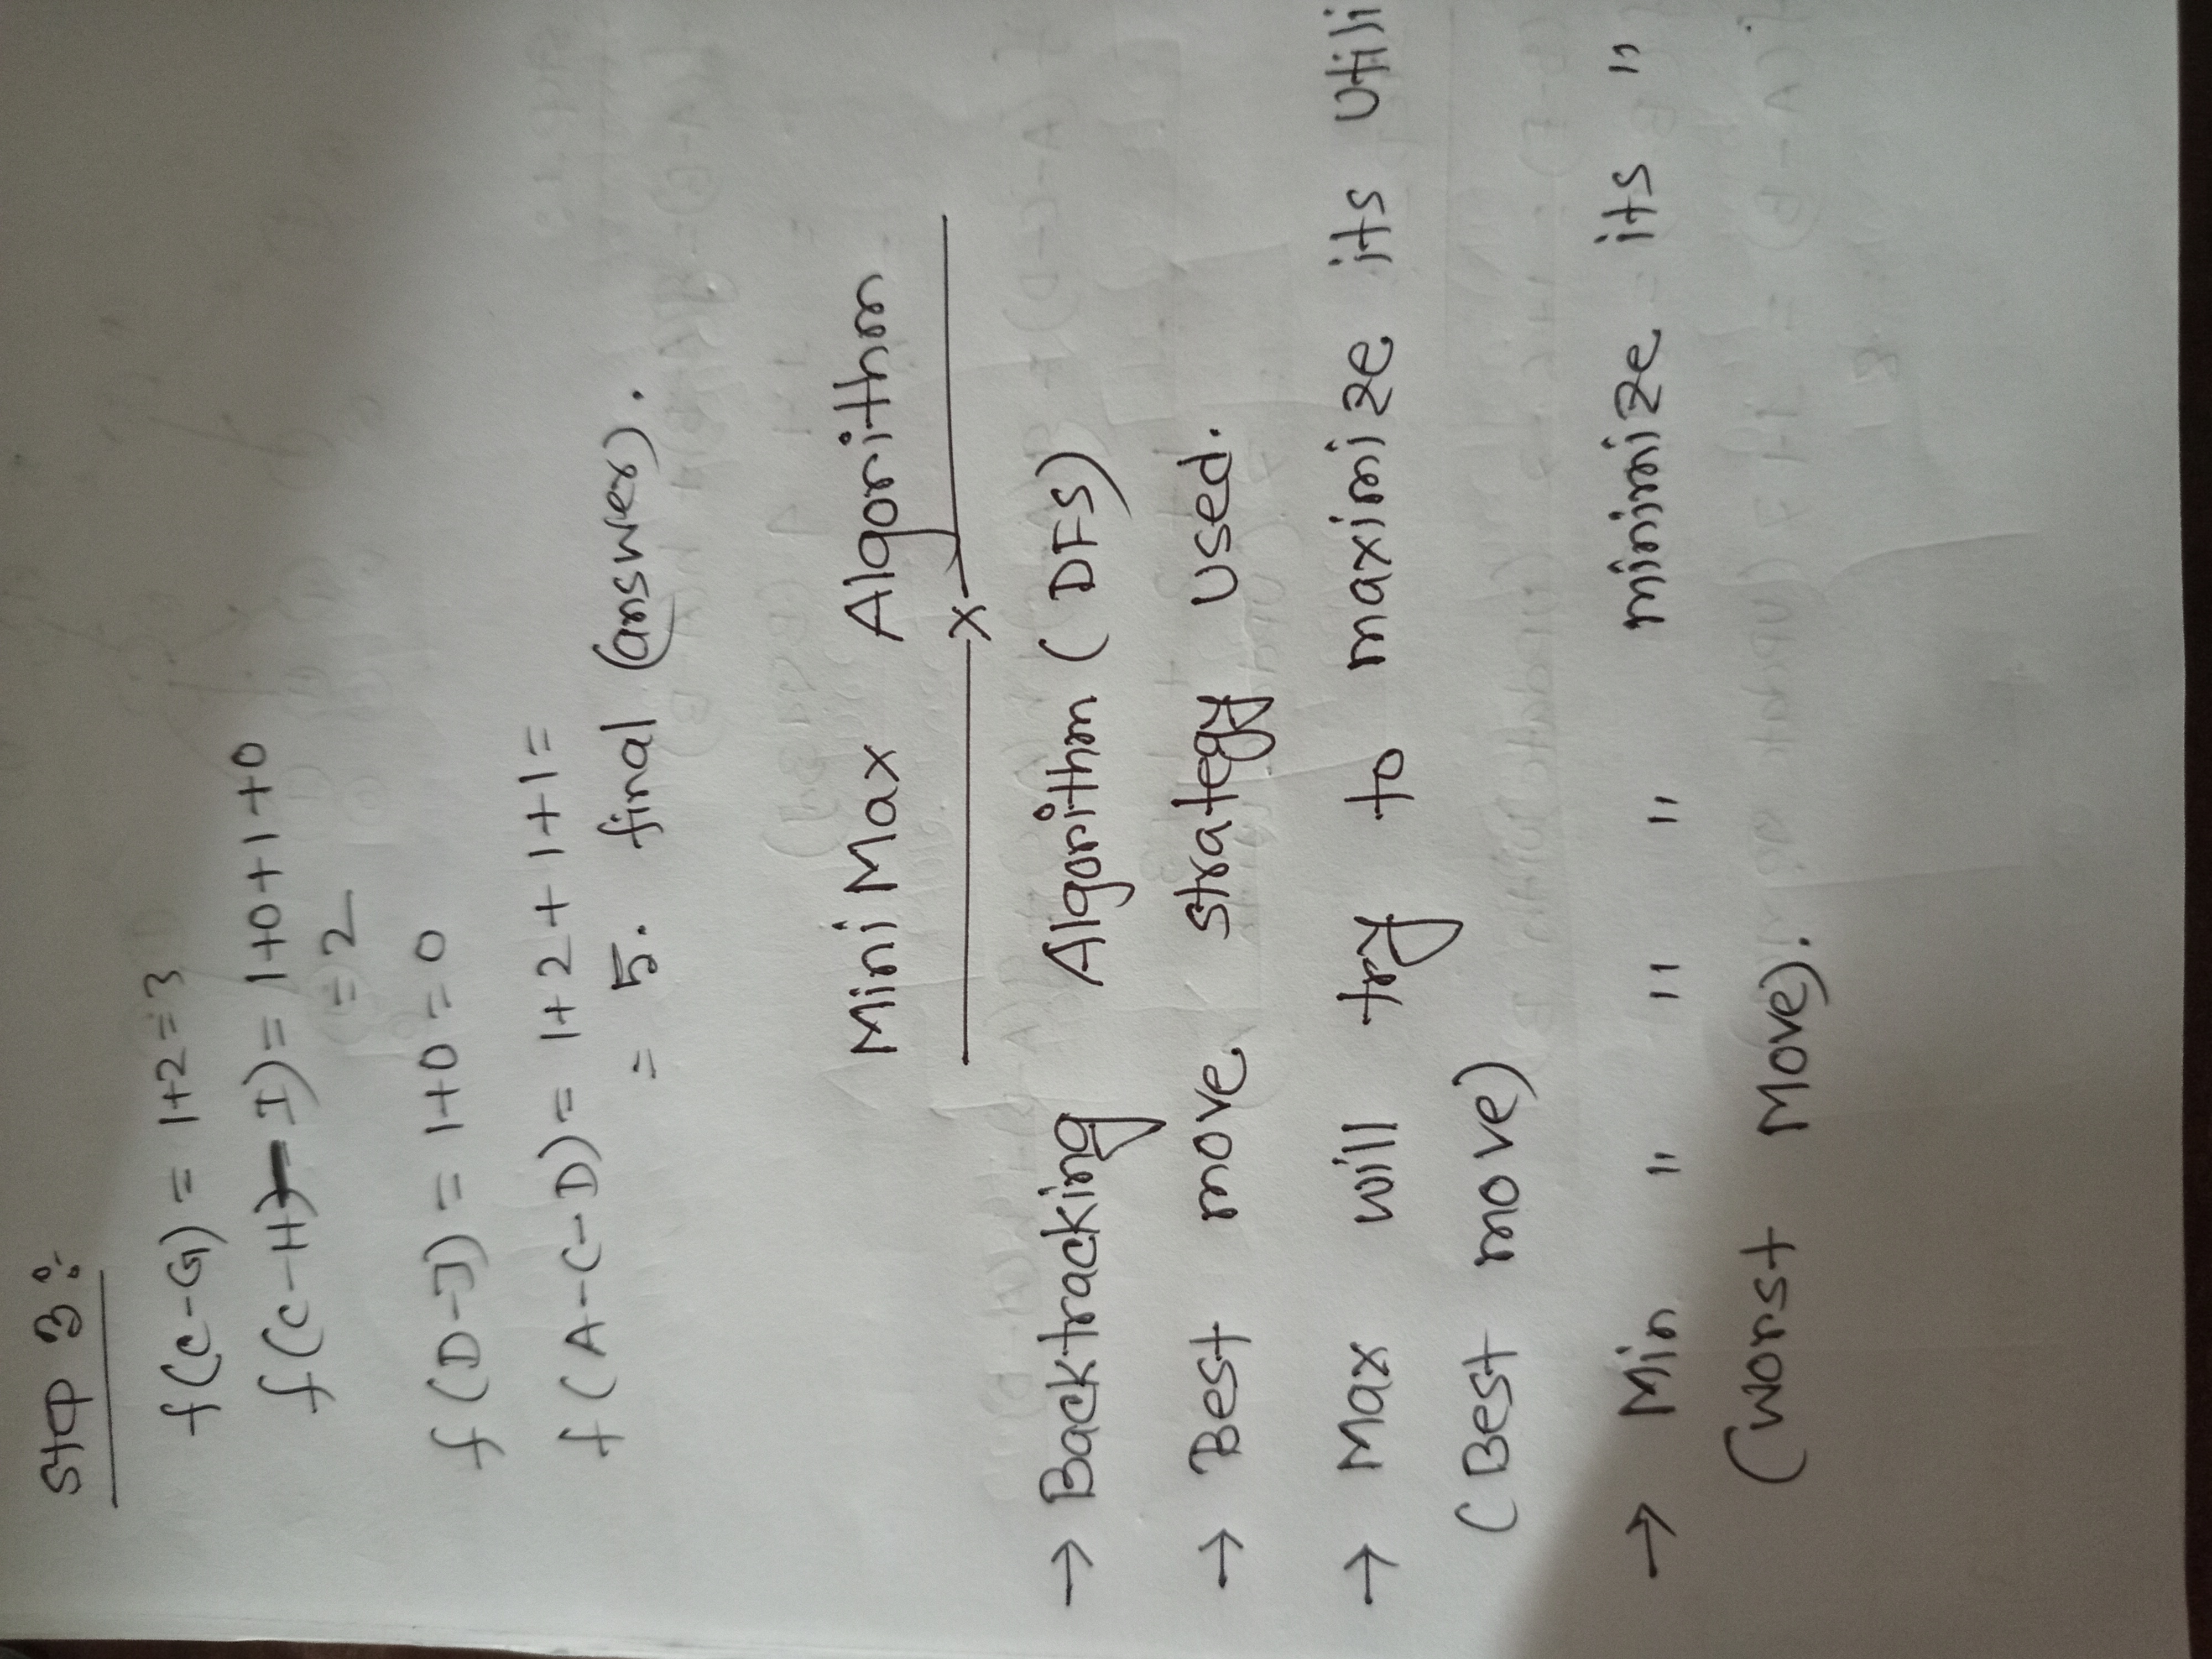 Step 3:-
f(C-G) = 1+2=3
f(C-H-I) = 1+0+1+0
= 2
f(D-J) = 1+0 = 0
f(A-C-D) = 1+2+1+1=
= 5. final (answer).
Mini Max Algorithm
x
→ Backtracking Algorithm (DFS)
→ Best move strategy used.
→ Max will try to maximize its Utili
(Best move)
→ Min " " " minimize its "
(Worst Move).